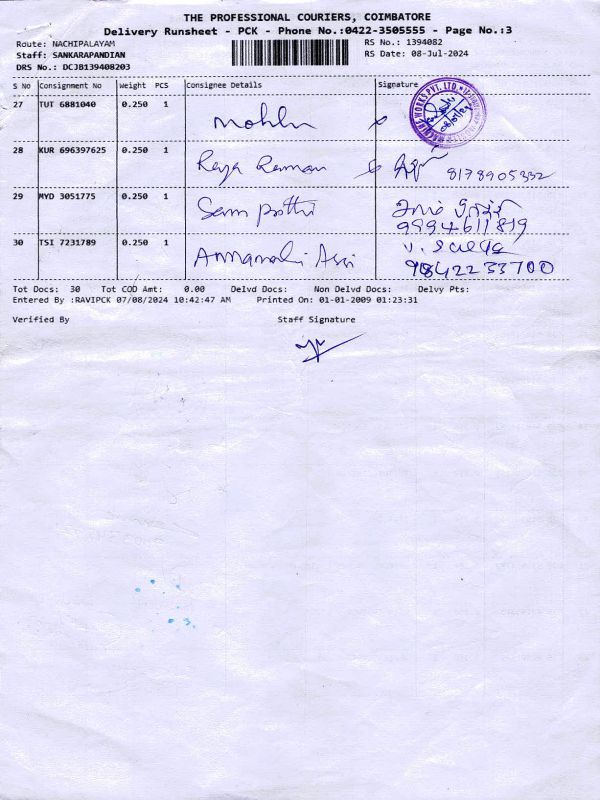 THE PROFESSIONAL COURIERS, COIMBATORE
Delivery Runsheet - PCK - Phone No.:0422-3505555 - Page No.:3
Route: NACHIPALAYAM
RS No.: 1394082
Staff: SANKARAPANDIAN
RS Date: 08-Jul-2024
DRS No.: DCJB139408203
S No Consignment No Weight PCS Consignee Details Signature
27 TUT 6881040 0.250 1
28 KUR 696397625 0.250 1 Raja Raman 8178905332
29 MYD 3051775 0.250 1
9994611819
30 TSI 7231789 0.250 1
9842233700
Tot Docs: 30 Tot COD Amt: 0.00 Delvd Docs: Non Delvd Docs: Delvy Pts:
Entered By :RAVIPCK 07/08/2024 10:42:47 AM Printed On: 01-01-2009 01:23:31
Verified By Staff Signature